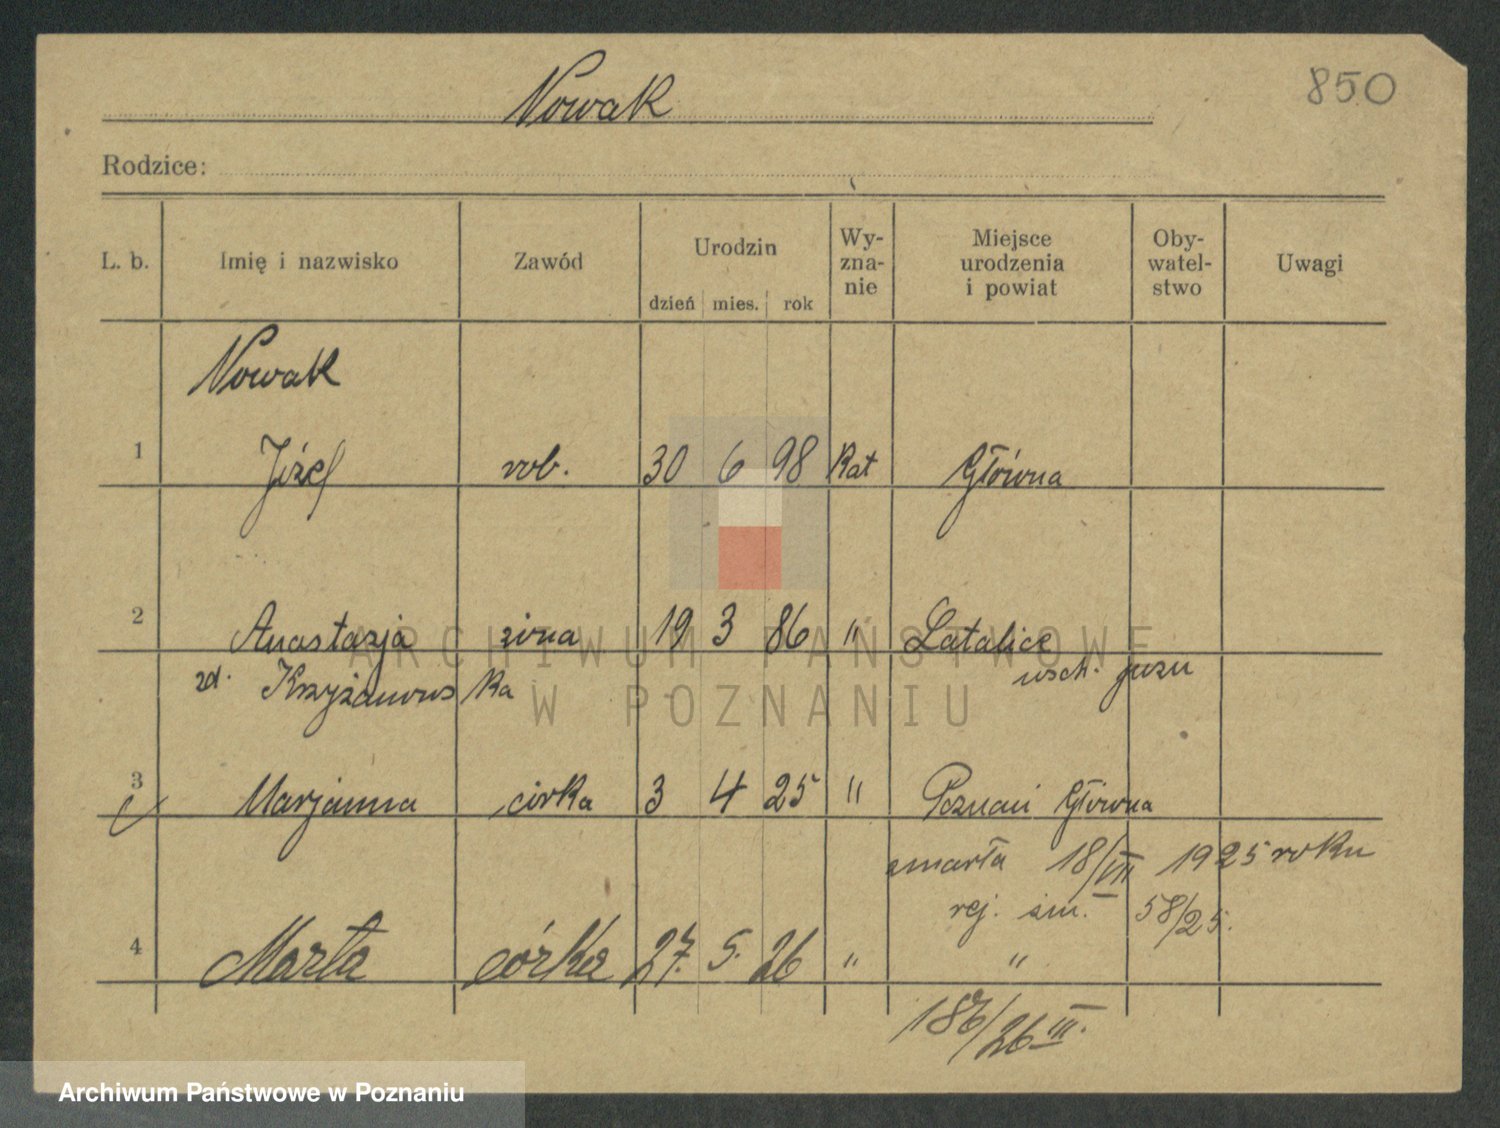 Nowak
850
Rodzice:
L. b.
Imię i nazwisko
Zawód
Urodzin
dzień mies. rok
Wy-
zna-
nie
Miejsce
urodzenia
i powiat
Oby-
watel-
stwo
Uwagi
Nowak
1 Józef rob. 30 6 98 Kat Główna
2 Anastazja żona 19 3 86 " Latalice
zd. Krzyżanowska wsch. pozn
3 Marjanna córka 3 4 25 " Poznań Główna
zmarła 18/VII 1925 roku
rej. śm. 58/25.
4 Marta córka 27. 5. 26 " "
186/26 III.
ARCHIWUM PAŃSTWOWE
W POZNANIU
Archiwum Państwowe w Poznaniu